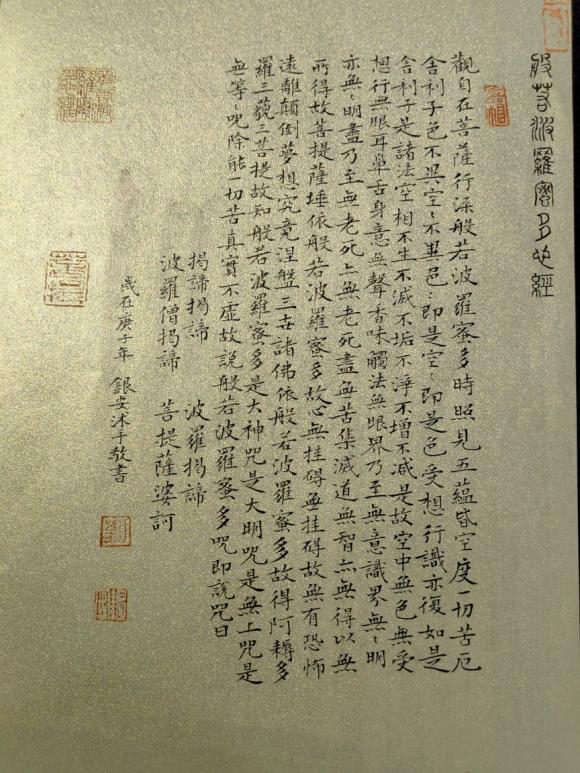 般若波羅密多心經
觀自在菩薩行深般若波羅蜜多時照見五蘊皆空度一切苦厄
舍利子色不異空〻不異色〻即是空〻即是色受想行識亦復如是
舍利子是諸法空相不生不滅不垢不淨不增不減是故空中無色無受
想行無眼耳鼻舌身意無聲香味觸法無眼界乃至無意識界無〻明
亦無〻明盡乃至無老死亦無老死盡無苦集滅道無智亦無得以無
所得故菩提薩埵依般若波羅蜜多故心無挂碍無挂碍故無有恐怖
遠離顛倒夢想究竟涅盤三世諸佛依般若波羅蜜多故得阿耨多
羅三藐三菩提故知般若波羅蜜多是大神咒是大明咒是無上咒是
無等〻咒除能一切苦真實不虛故說般若波羅蜜多咒即說咒曰
揭諦揭諦 波羅揭諦
波羅僧揭諦 菩提薩婆訶
歲在庚子年 銀安沐手敬書